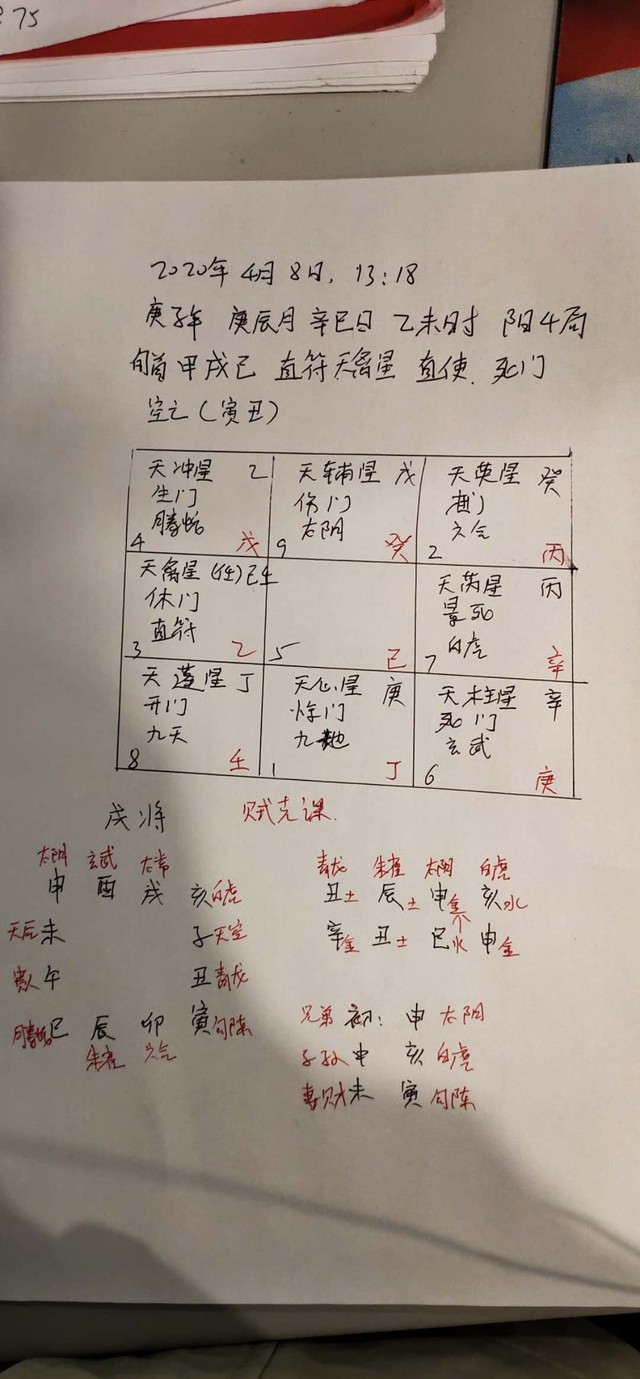 75
2020年 4月 8日, 13:18
庚子年 庚辰月 辛巳日 乙未时 阳4局
旬首 甲戌己 直符天禽星 直使. 死门
空亡(寅丑)
天冲星 乙
生门
腾蛇
4 戊
天辅星 戊
伤门
太阴
9 癸
天英星 癸
杜门
六合
2 丙
天禽星(任)己壬
休门
直符
3 乙
5 己
天芮星 丙
景死
白虎
7 辛
天蓬星 丁
开门
九天
8 壬
天心星 庚
惊门
九地
1 丁
天柱星 辛
死门
玄武
6 庚
戌将 贼克课.
太阴 玄武 太常
申 酉 戌 亥白虎
天后未 子天空
午 丑青龙
腾蛇巳 辰 卯 寅勾陈
朱雀 六合
青龙 朱雀 太阴 白虎
丑土 辰土 申金 亥水
辛金 丑土 巳火 申金
兄弟 初: 申 太阴
子孙 中 亥 白虎
妻财 末 寅 勾陈